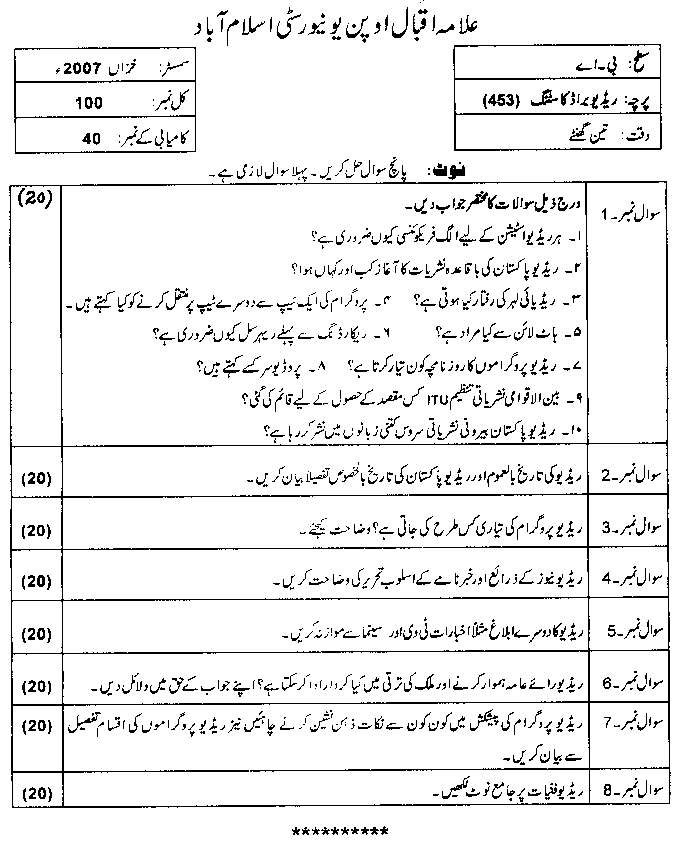 علامہ اقبال اوپن یونیورسٹی اسلام آباد
سطح: بی۔اے
سمسٹر: خزاں 2007ء
پرچہ: ریڈیو براڈکاسٹنگ (453)
کل نمبر: 100
وقت: تین گھنٹے
کامیابی کے نمبر: 40
نوٹ: پانچ سوال حل کریں۔ پہلا سوال لازمی ہے۔
سوال نمبر۔1 درج ذیل سوالات کا مختصر جواب دیں۔ (20)
۱۔ ہر ریڈیو اسٹیشن کے لیے الگ فریکوئنسی کیوں ضروری ہے؟
۲۔ ریڈیو پاکستان کی باقاعدہ نشریات کا آغاز کب اور کہاں ہوا؟
۳۔ ریڈیائی لہر کی رفتار کیا ہوتی ہے؟ ۴۔ پروگرام کی ایک ٹیپ سے دوسرے ٹیپ پر منتقل کرنے کو کیا کہتے ہیں۔
۵۔ ہاٹ لائن سے کیا مراد ہے؟ ۶۔ ریکارڈنگ سے پہلے ریہرسل کیوں ضروری ہے؟
۷۔ ریڈیو پروگراموں کا روزنامچہ کون تیار کرتا ہے؟ ۸۔ پروڈیوسر کسے کہتے ہیں؟
۹۔ بین الاقوامی نشریاتی تنظیم ITU کس مقصد کے حصول کے لیے قائم کی گئی؟
۱۰۔ ریڈیو پاکستان بیرونی نشریاتی سروس کتنی زبانوں میں نشر کر رہا ہے؟
سوال نمبر۔2 ریڈیو کی تاریخ بالعموم اور ریڈیو پاکستان کی تاریخ بالخصوص تفصیلاً بیان کریں۔ (20)
سوال نمبر۔3 ریڈیو پروگرام کی تیاری کس طرح کی جاتی ہے؟ وضاحت کیجئے۔ (20)
سوال نمبر۔4 ریڈیو نیوز کے ذرائع اور خبرنامے کے اسلوب تحریر کی وضاحت کریں۔ (20)
سوال نمبر۔5 ریڈیو کا دوسرے ابلاغ مثلاً اخبارات ٹی وی اور سینما سے موازنہ کریں۔ (20)
سوال نمبر۔6 ریڈیو رائے عامہ ہموار کرنے اور ملک کی ترقی میں کیا کردار ادا کر سکتا ہے؟ اپنے جواب کے حق میں دلائل دیں۔ (20)
سوال نمبر۔7 ریڈیو پروگرام کی پیشکش میں کون کون سے نکات ذہن نشین کرنے چاہئیں نیز ریڈیو پروگراموں کی اقسام تفصیل (20)
سے بیان کریں۔
سوال نمبر۔8 ریڈیو فنیات پر جامع نوٹ لکھیں۔ (20)
**********